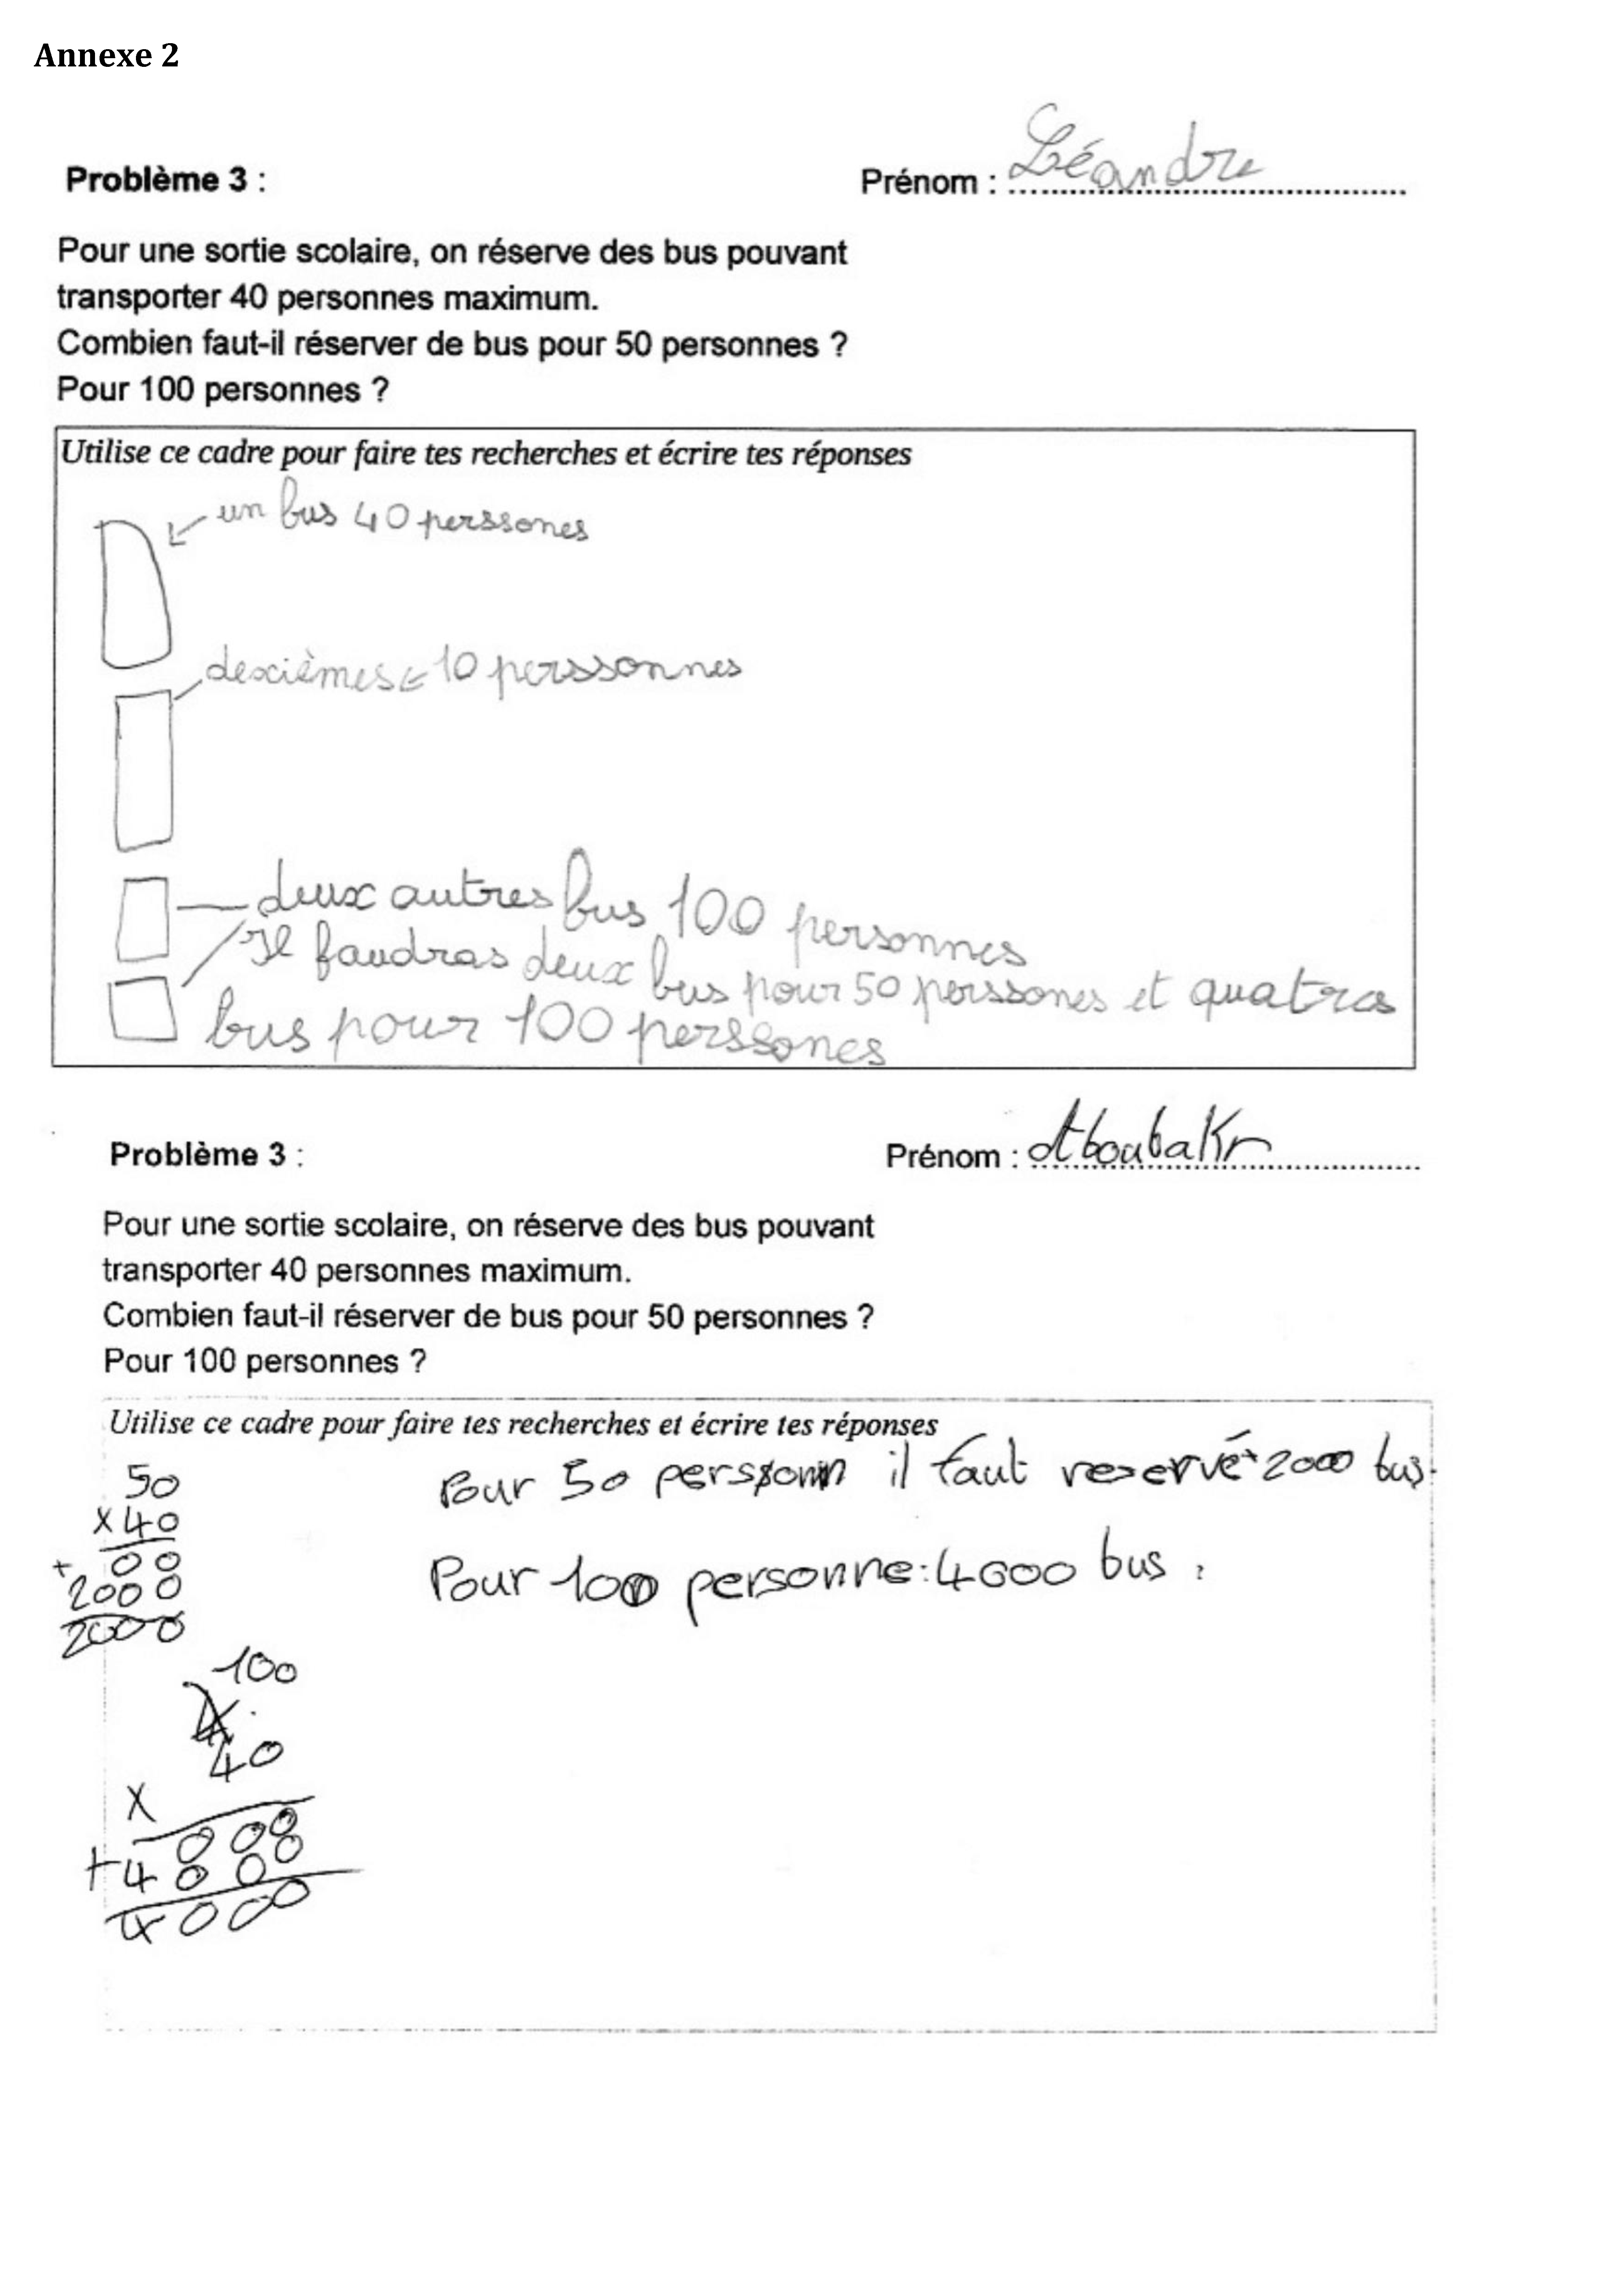 Annexe 2
Problème 3 :
Prénom : Léandre
Pour une sortie scolaire, on réserve des bus pouvant
transporter 40 personnes maximum.
Combien faut-il réserver de bus pour 50 personnes ?
Pour 100 personnes ?
Utilise ce cadre pour faire tes recherches et écrire tes réponses
un bus 40 perssones
dexièmes 10 perssonnes
deux autres bus 100 personnes
Il faudras deux bus pour 50 perssones et quatres
bus pour 100 perssones
Problème 3 :
Prénom : Aboubakr
Pour une sortie scolaire, on réserve des bus pouvant
transporter 40 personnes maximum.
Combien faut-il réserver de bus pour 50 personnes ?
Pour 100 personnes ?
Utilise ce cadre pour faire tes recherches et écrire tes réponses
Pour 50 il faut reservé 2000 bus.
Pour 100 personne : 4000 bus .
50
x 40
+ 00
2000
2000
100
40
x
000
+ 4000
4000